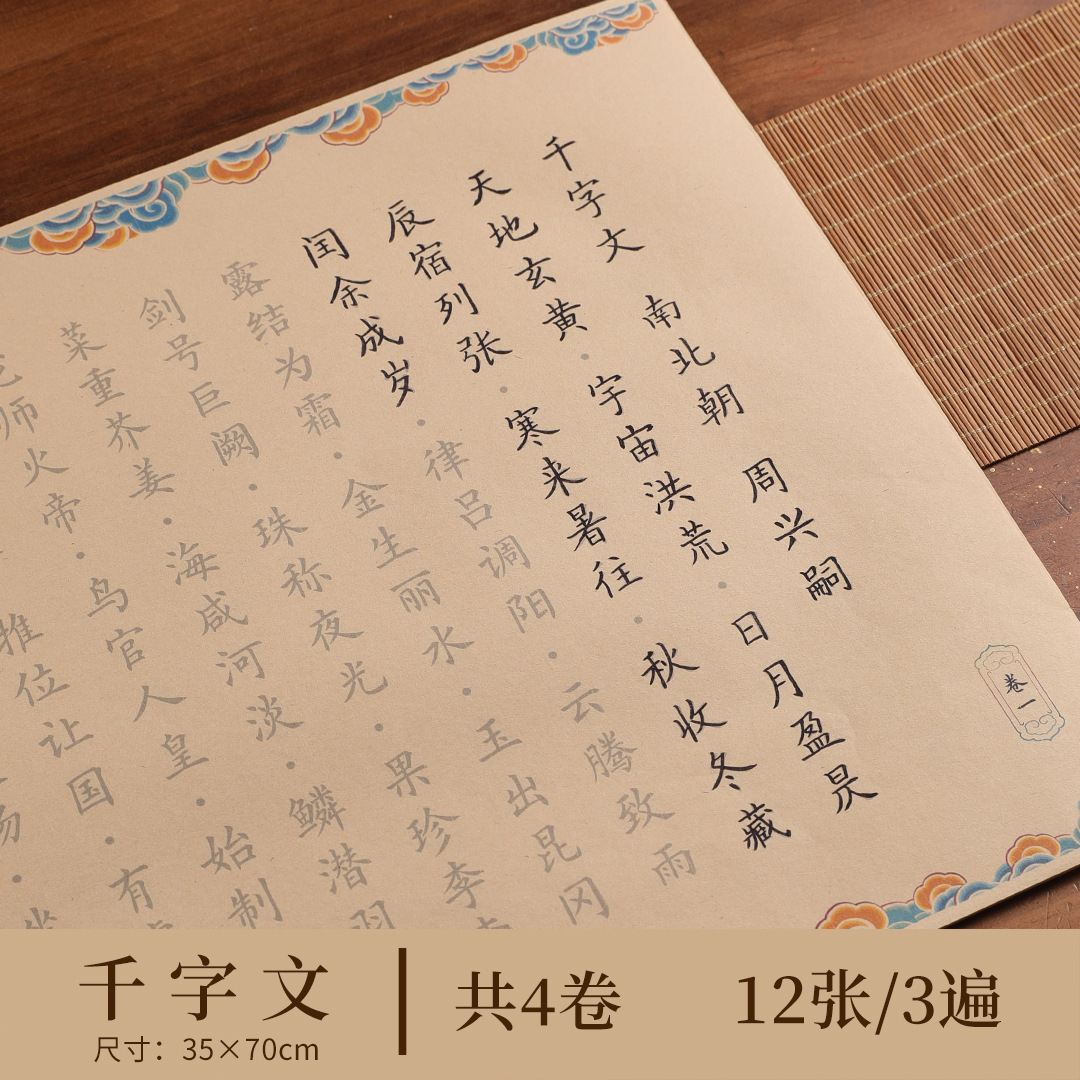 千字文 南北朝 周兴嗣
天地玄黄·宇宙洪荒·日月盈昃
辰宿列张·寒来暑往·秋收冬藏
闰余成岁·律吕调阳·云腾致雨
露结为霜·金生丽水·玉出昆冈
剑号巨阙·珠称夜光·果珍李
菜重芥姜·海咸河淡·鳞潜羽
师火帝·鸟官人皇·始制
推位让国·有
卷一
千字文
尺寸：35×70cm
共4卷
12张/3遍